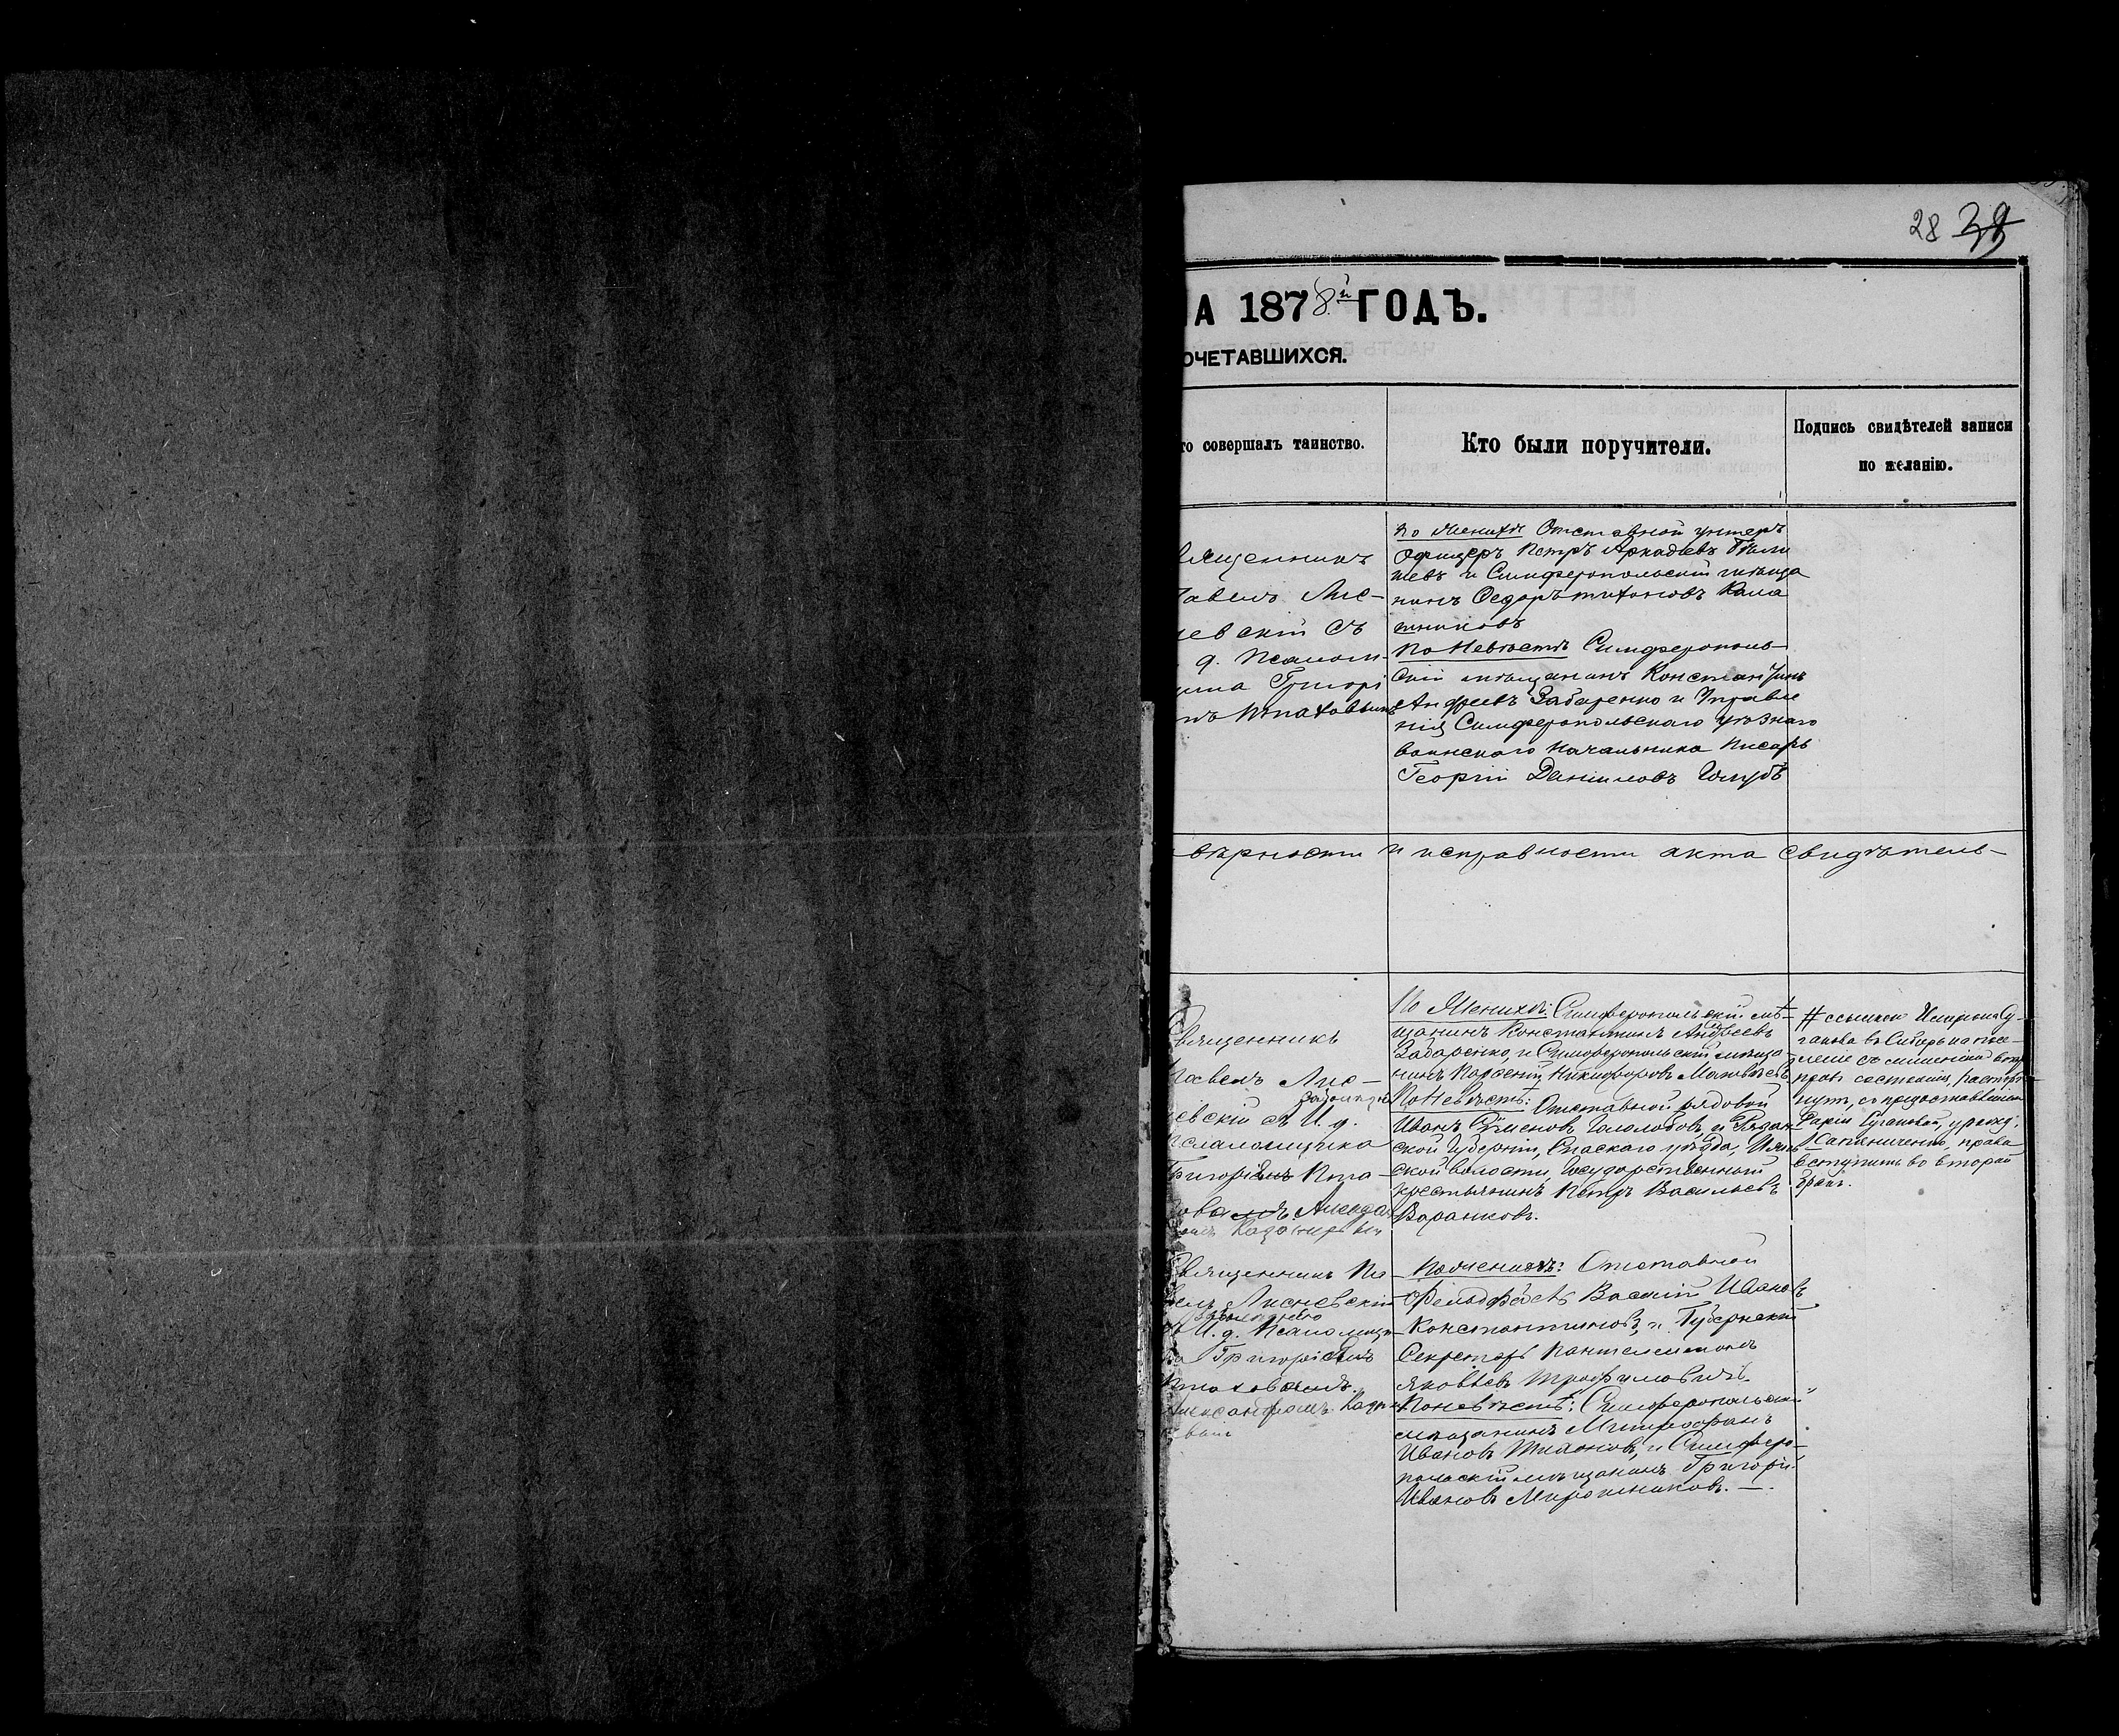 28 39
НА 1878й ГОДЪ.
ОЧЕТАВШИХСЯ.
то совершалъ таинство.
Кто были поручители.
Подпись свидѣтелей записи
по желанію.
вященникъ
Павелъ Лис-
невскій съ
д. Псалом-
щика Григорі
Птаховымъ
по женихѣ Отставной унтеръ
Офицеръ Петръ Аркадіевъ
и Симферопольскій мѣща
нинъ Ѳедоръ Тихоновъ Кала
шниковъ
по Невѣстѣ Симферополь
скій мѣщанинъ Константинъ
Андреевъ Забаренко и Управле
нія Симферопольскаго уѣзднаго
воинскаго начальника писарь
Георгій Даниловъ Голубъ
вѣрности и исправности акта свидѣтель-
Священникъ
Павелъ Лис-
невскій съ И. д.
Псаломщика
Григоріемъ Пта-
ховымъ Алексан
По Женихѣ: Симферопольскій мѣ-
щанинъ Константинъ Андреевъ
Забаренко, и Симферопольскій мѣща
нинъ Никифоровъ
По Невѣстѣ: Отставной рядовой
Иванъ Семеновъ и Рязан-
ской Губерніи, Спаскаго уѣзда,
ской волости, Государственный
крестьянинъ Петръ Васильевъ
Варанковъ.
# ссылкою
въ Сибирь на посе-
леніе съ лишеніемъ всѣхъ
правъ состоянія, расторг
нутъ, съ предоставленіемъ
урожд.
права
вступить во второй
бракъ.
Священникъ Па
велъ Лисневскій
съ И. д. Псаломщи
ка Григоріемъ
Птаховымъ.
Александромъ
По женихѣ: Отставной
Фельдфебель Василій Ивановъ
Константиновъ, и Губернскій
Секретарь Пантелеимонъ
Яковлевъ Трофимовичъ.
По невѣстѣ: Симферопольскій
мѣщанинъ Митрофанъ
Ивановъ Тихоновъ, и Симферо-
польскій мѣщанинъ Григорій
Ивановъ Мирошниковъ. —.